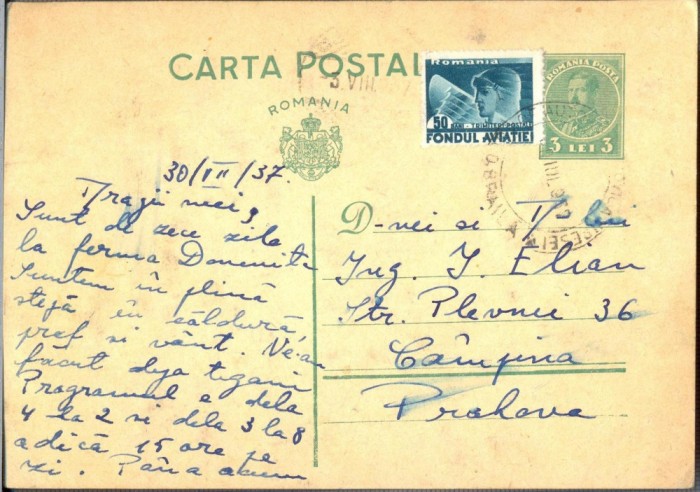 CARTA POSTAL
ROMANIA
Romania
50 BANI - TRIMITERI POSTALE
FONDUL AVIAȚIEI
ROMANIA POSTA
3 LEI 3
3. VIII.
BRAILA
30/VII/37.
Dragii mei,
Sunt de zece zile
la ferma Domnița
Suntem în plină
stepă în căldură,
praf si vânt. Ne-am
făcut deja țigani
Programul e dela
4 la 2 si dela 3 la 8
adică 15 ore pe
zi. Până acum
D-nei si D-lui
Ing. I. Elian
Str. Plevnei 36
Câmpina
Prahova